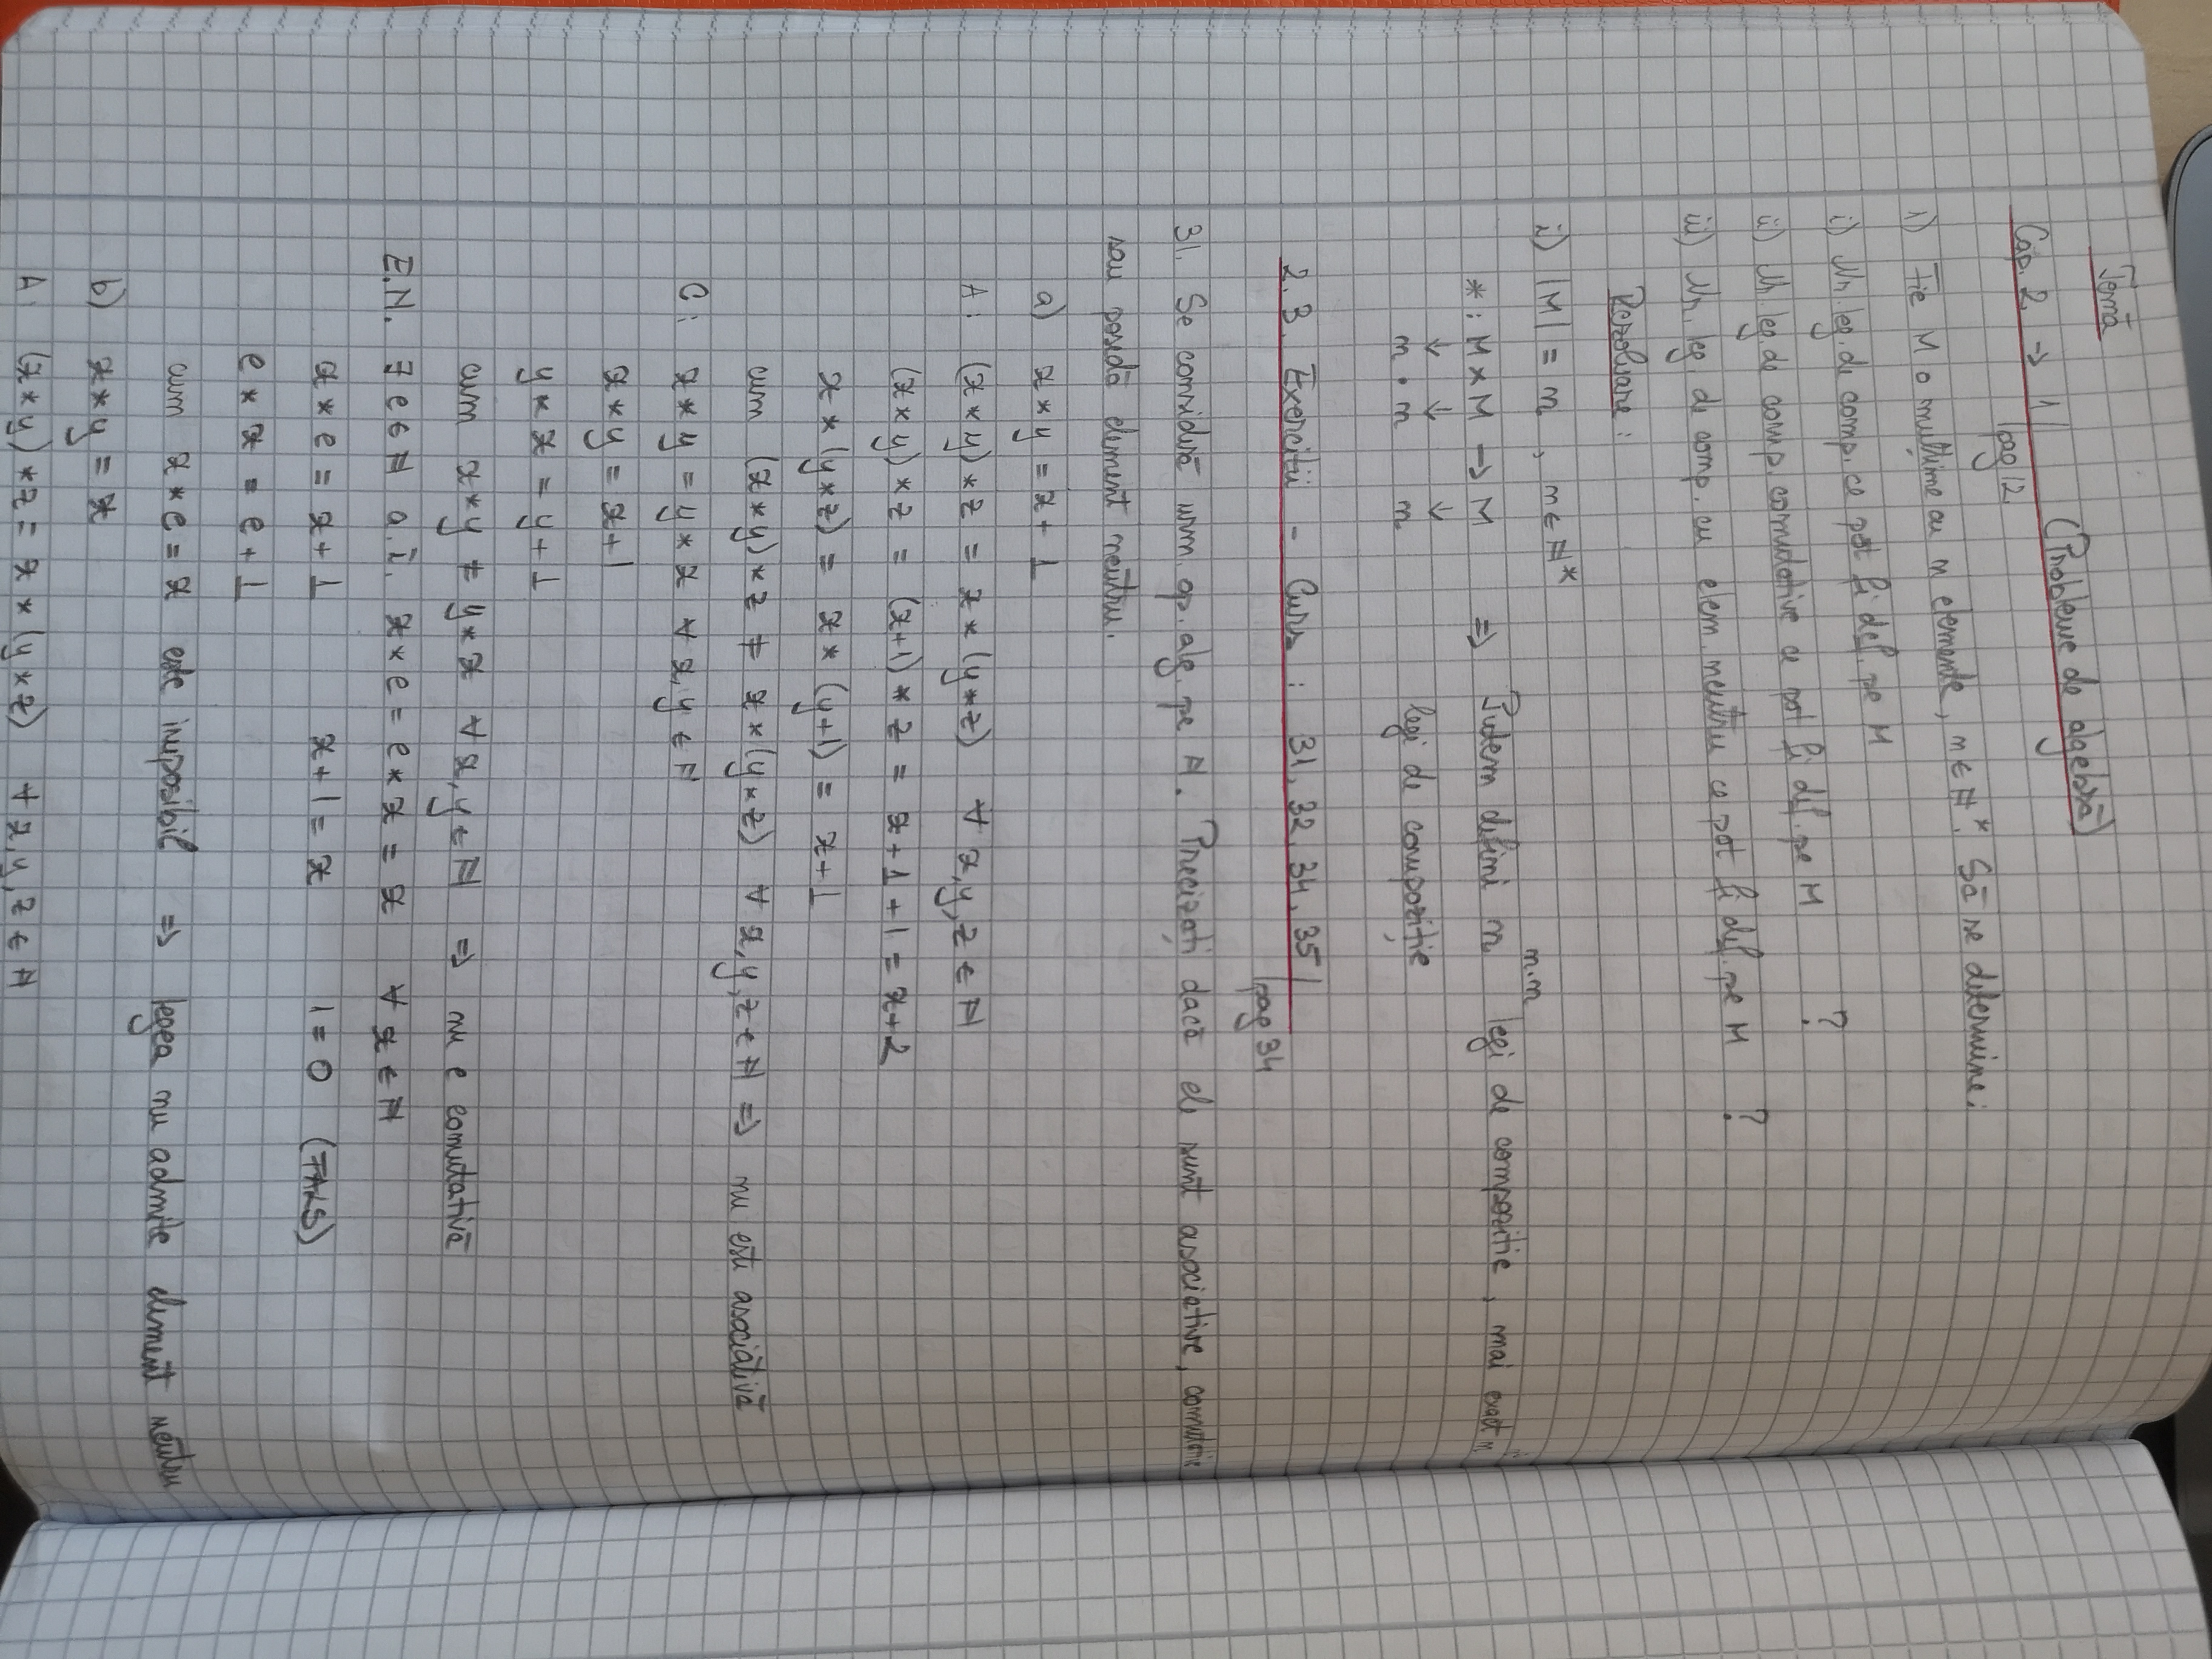 Temă
Cap. 2 → 1 | (Probleme de algebră)
pag 12
1) Fie M o mulțime cu n elemente, n ∈ ℕ*. Să se determine:
i) Nr. leg. de comp. ce pot fi def. pe M
ii) Nr. leg. de comp. comutative ce pot fi def. pe M ?
iii) Nr. leg. de comp. cu elem. neutru ce pot fi def. pe M ?
Rezolvare:
i) |M| = n , n ∈ ℕ*
* : M × M → M ⇒ Putem defini n^(n·n) legi de compoziție, mai exact
↓ ↓ ↓
n · n n legi de compoziție
2.3. Exerciții - Curs : 31, 32, 34, 35 |
pag 34
31. Se consideră urm. op. alg. pe ℕ. Precizați dacă ele sunt asociative, comutative
sau posedă element neutru.
a) x * y = x + 1
A: (x * y) * z = x * (y * z) ∀ x, y, z ∈ ℕ
(x * y) * z = (x+1) * z = x + 1 + 1 = x + 2
x * (y * z) = x * (y+1) = x + 1
cum (x * y) * z ≠ x * (y * z) ∀ x, y, z ∈ ℕ ⇒ nu este asociativă
C: x * y = y * x ∀ x, y ∈ ℕ
x * y = x + 1
y * x = y + 1
cum x * y ≠ y * x ∀ x, y ∈ ℕ ⇒ nu e comutativă
E.N. ∃ e ∈ ℕ a.î. x * e = e * x = x ∀ x ∈ ℕ
x * e = x + 1 x + 1 = x 1 = 0 (FALS)
e * x = e + 1
cum x * e = x este imposibil ⇒ legea nu admite element neutru
b) x * y = x
A: (x * y) * z = x * (y * z) ∀ x, y, z ∈ ℕ